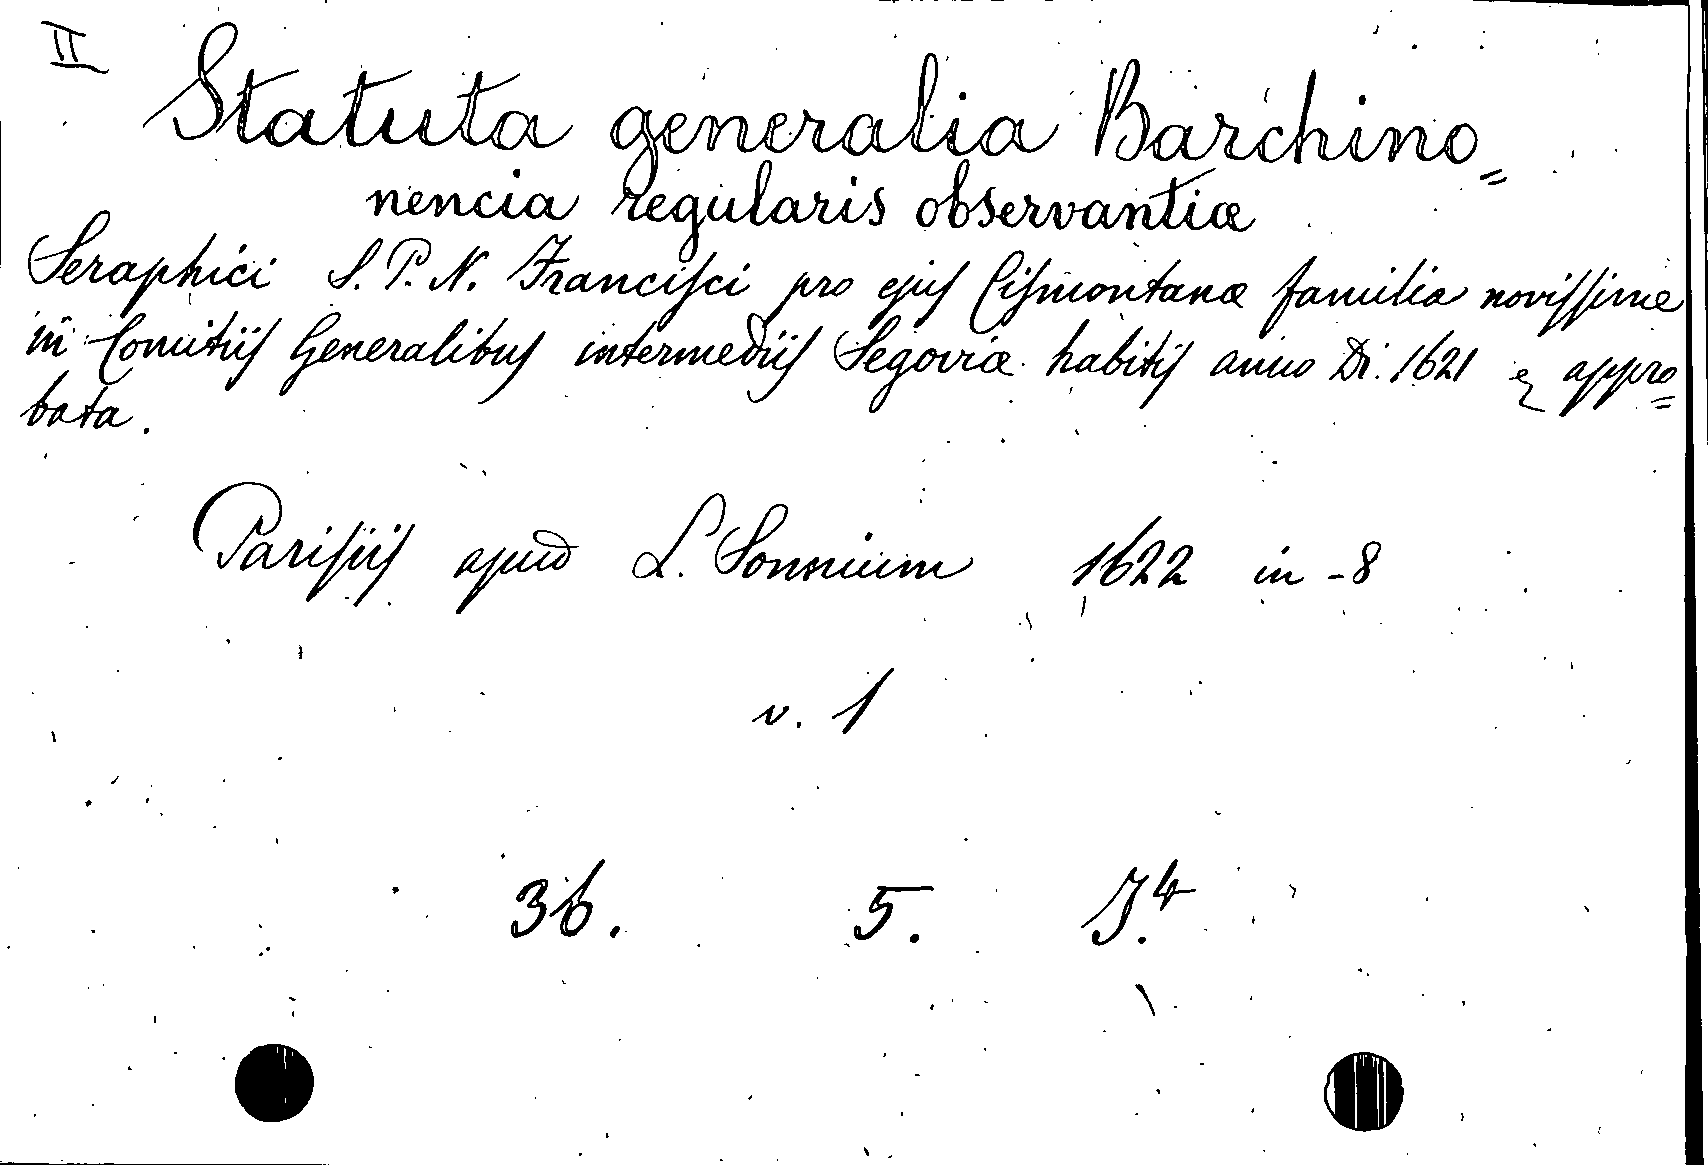 II
Statuta generalia Barchino=
nencia regularis observantiæ
Seraphici S. P. N. Francisci pro ejus Cismontanæ familia novissime
in Comitiis Generalibus intermediis Segoviæ habitis anno Di. 1621 & appro=
bata.
Parisiis apud L. Sonnium 1622 in-8
v. 1
36. 5. J.4